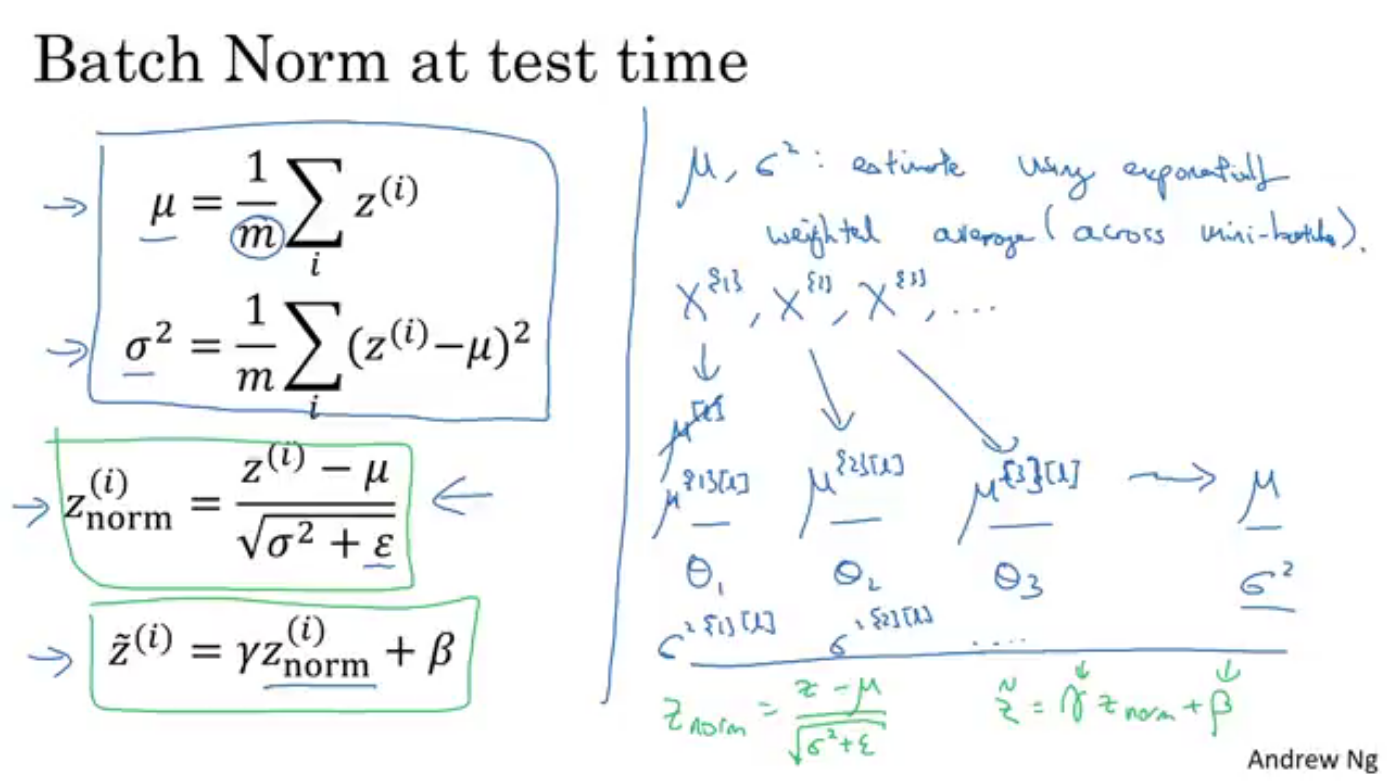 Batch Norm at test time
μ = 1/m ∑_i z^(i)
σ² = 1/m ∑_i (z^(i)−μ)²
z_norm^(i) = (z^(i) − μ)/√(σ² + ε)
z̃^(i) = γz_norm^(i) + β
μ, σ² : estimate using exponentially
weighted average (across mini-batches).
X^{1}, X^{2}, X^{3}, ...
μ^[l]
μ^{1}[l] μ^{2}[l] μ^{3}[l] → μ
θ₁ θ₂ θ₃ σ²
σ²^{1}[l] σ²^{2}[l] ....
z_norm = (z − μ)/√(σ²+ε) z̃ = γ z_norm + β
Andrew Ng